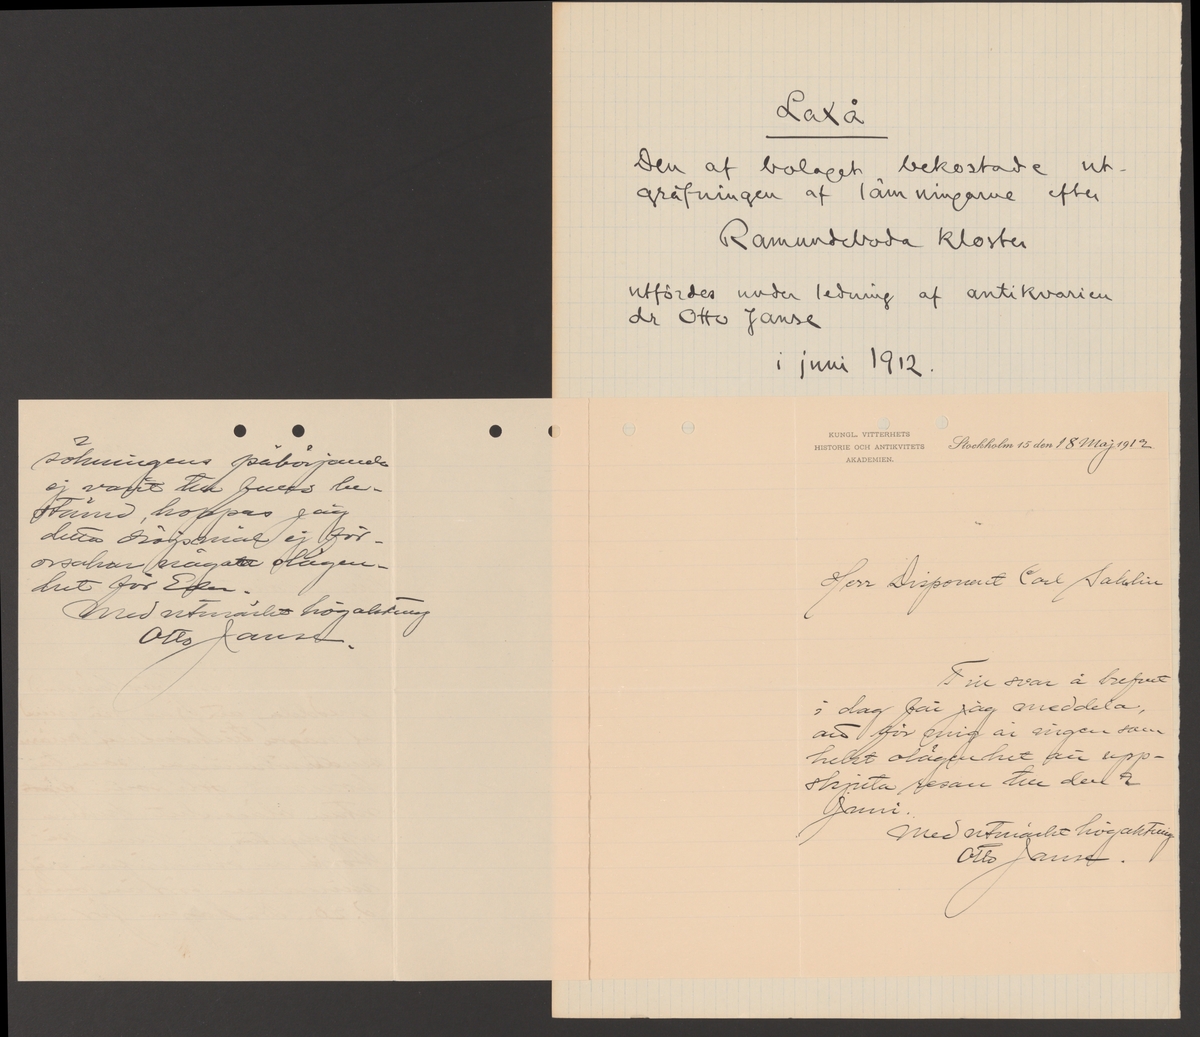 Laxå
Den af bolaget bekostade ut-
gräfningen af lämningarne efter
Ramundeboda kloster
utfördes under ledning af antikvarien
dr Otto Janse
i juni 1912.
2
sökningens påbörjande
ej varit till fullo be-
stämd, hoppas jag
detta dröjsmål ej för-
orsakar någon olägen-
het för Eder.
Med utmärkt högaktning
Otto Janse.
KUNGL. VITTERHETS
HISTORIE OCH ANTIKVITETS
AKADEMIEN.
Stockholm 15 den 18 Maj 1912
Herr Disponent Carl Sahlin
Till svar å brefvet
i dag får jag meddela,
att för mig är ingen som
helst olägenhet att upp-
skjuta resan till den 2
Juni.
Med utmärkt högaktning
Otto Janse.